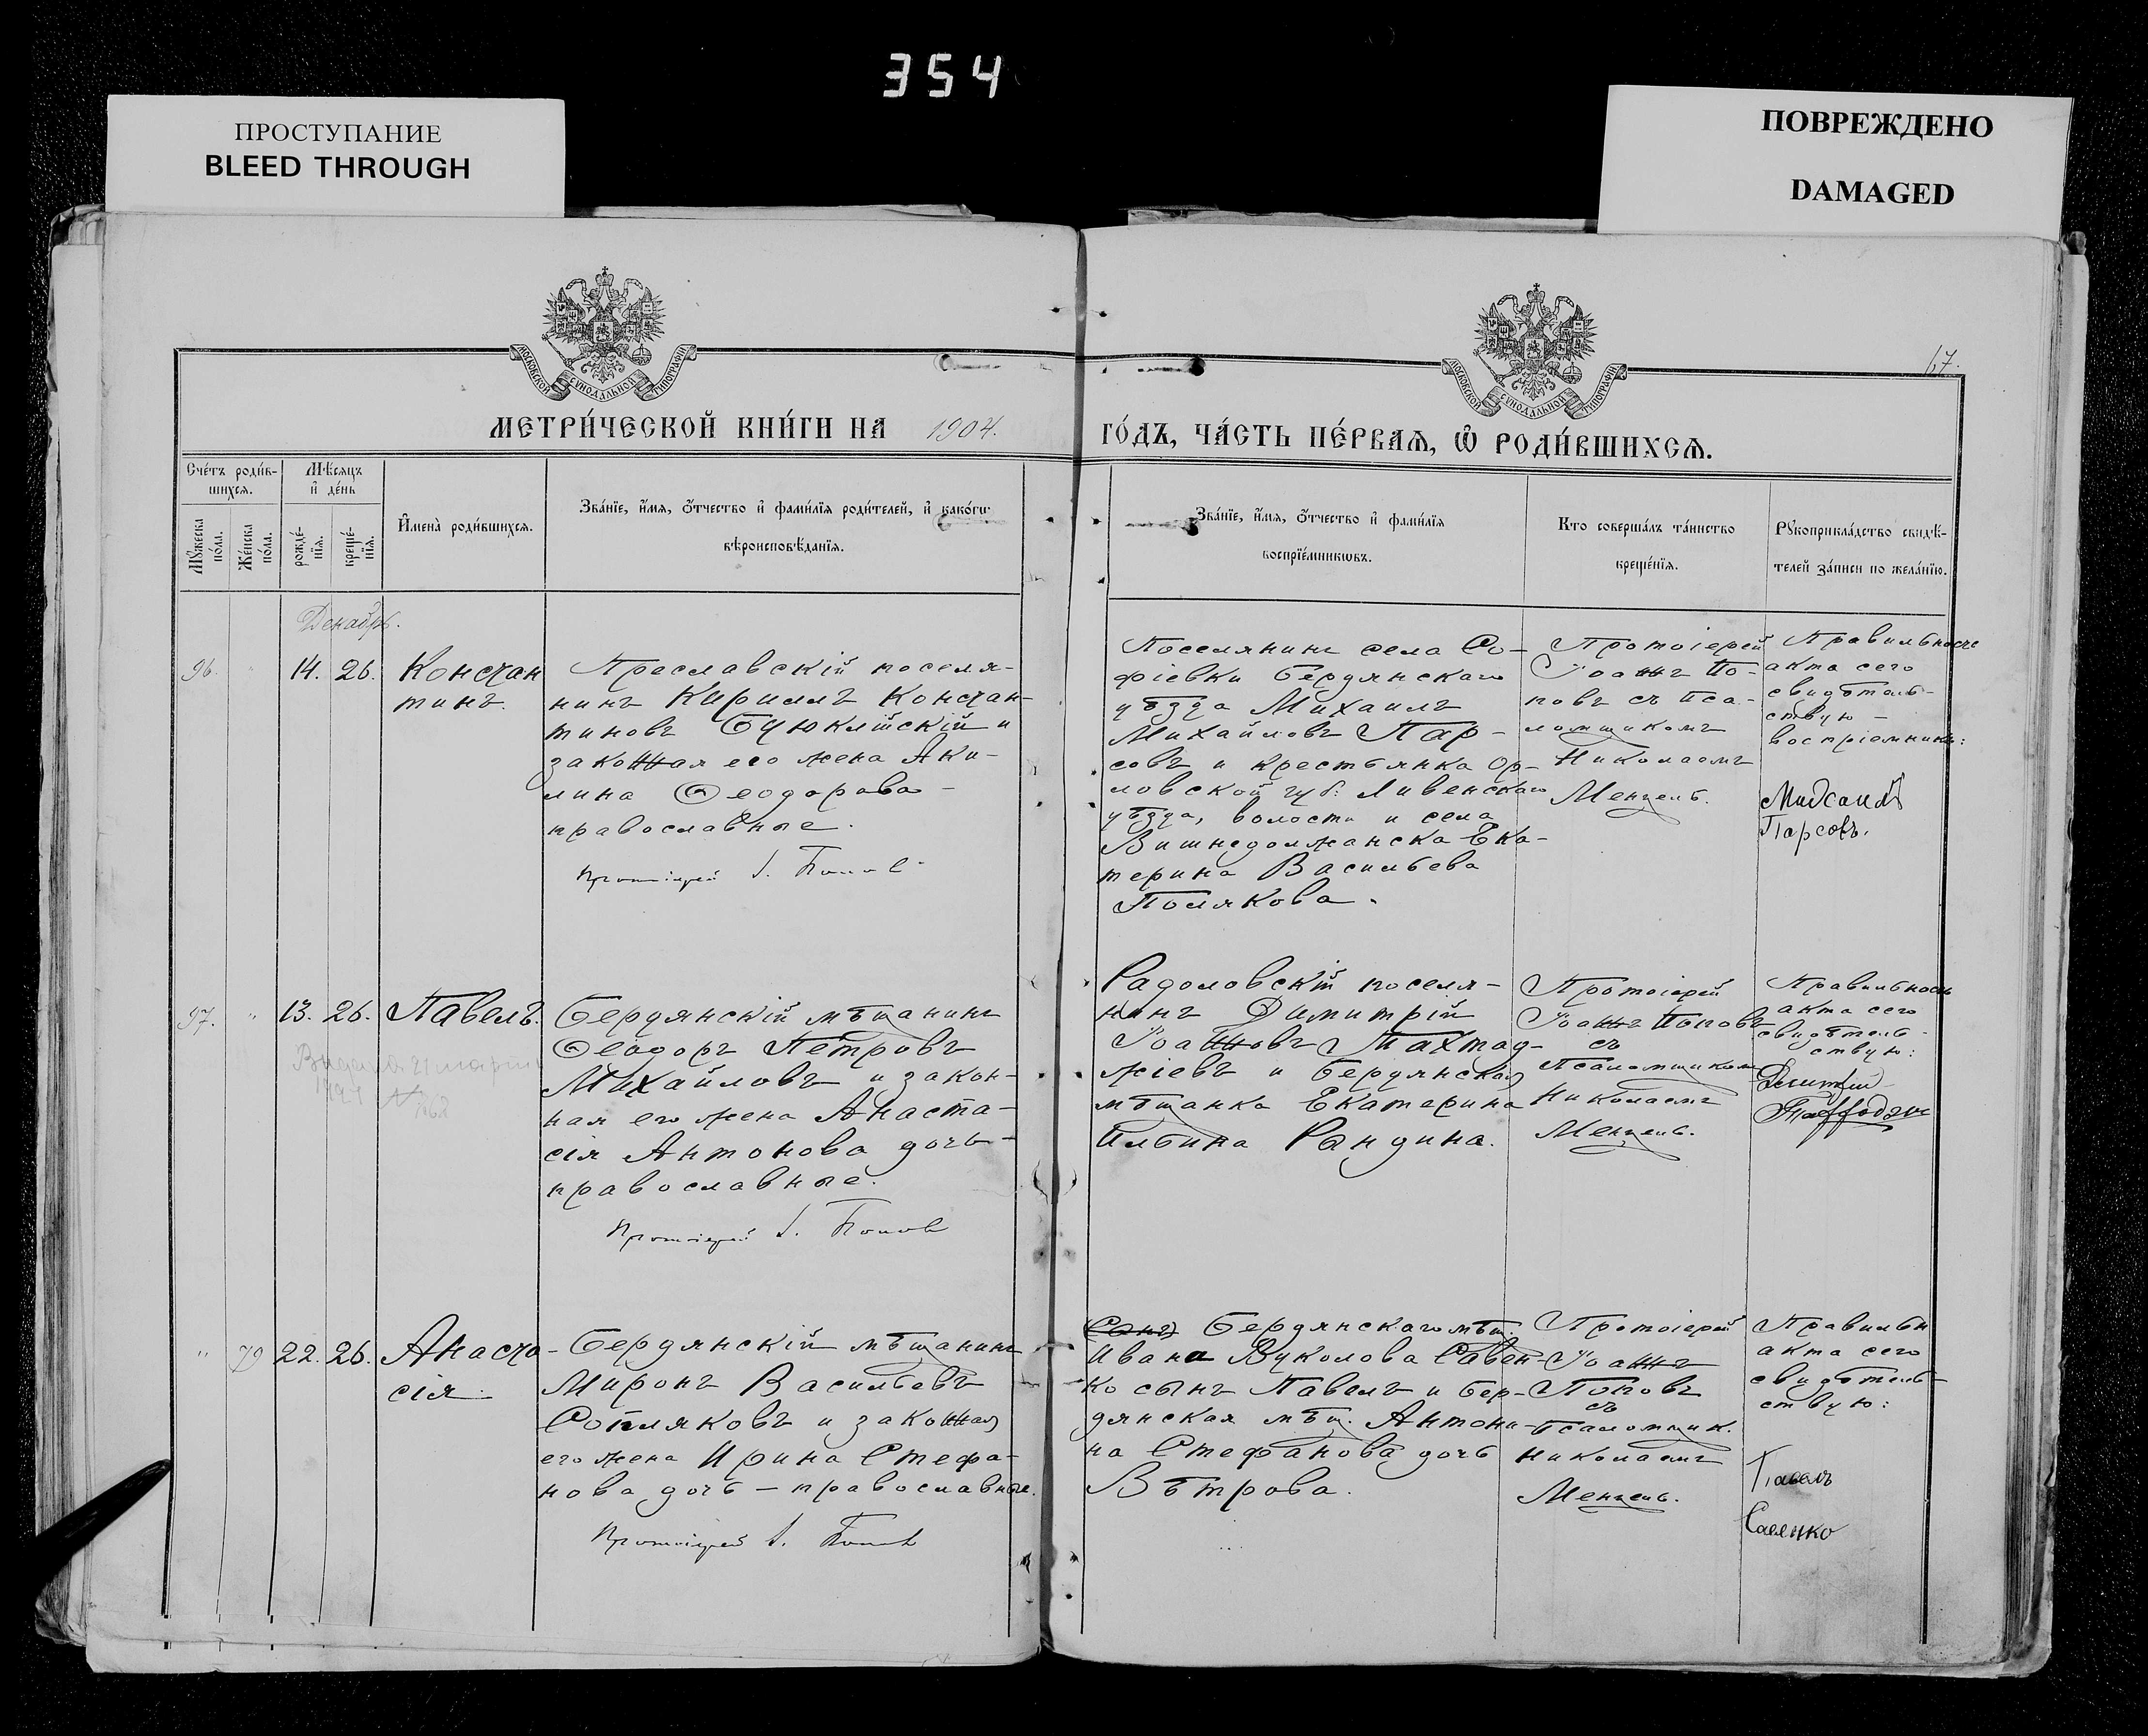 354
ПРОСТУПАНИЕ
BLEED THROUGH
ПОВРЕЖДЕНО
DAMAGED
МОСКОВСКОЙ СѴНОДАЛЬНОЙ ТИПОГРАФІИ
МОСКОВСКОЙ СѴНОДАЛЬНОЙ ТИПОГРАФІИ
67.
МЕТРИ́ЧЕСКОЙ КНИ́ГИ НА 1904.
ГО́ДЪ, ЧА́СТЬ ПЕ́РВАѦ, Ѡ҆ РОДИ́ВШИХСѦ.
Сче́тъ роди́в-
шихсѧ.
Мѣ́сѧцъ
и҆ де́нь
Мꙋ́жеска
по́ла.
Же́нска
по́ла.
рожде́-
нїѧ.
креще́-
нїѧ.
И҆мена̀ роди́вшихсѧ.
Зва́нїе, и҆́мѧ, ѻ҆́тчество и҆ фами́лїѧ роди́телей, и҆ како́гѡ
вѣроисповѣ́данїѧ.
Зва́нїе, и҆́мѧ, ѻ҆́тчество и҆ фами́лїѧ
воспрїе́мникѡвъ.
Кто соверша́лъ та́инство
креще́нїѧ.
Рꙋкоприкла́дство свидѣ́-
телей за́писи по жела́нїю.
Декабрь.
96. " 14. 26.
Констан
тинъ.
Преславскій поселя-
нинъ Кириллъ Констан-
тиновъ Буюклійскій и
законная его жена Аки-
лина Ѳеодорова -
православные.
Протоіерей І. Попов
Поселянинъ села Со-
фіевки Бердянскаго
уѣзда Михаилъ
Михайловъ Пар-
совъ и крестьянка Ор-
ловской губ: Ливенскаго
уѣзда, волости и села
Вышнедолжанска Ека-
терина Васильева
Полякова.
Протоіерей
Іоаннъ По-
повъ съ пса-
ломщикомъ
Николаемъ
Менцель.
Правильность
акта сего
свидѣтель-
ствую -
воспріемники:
Парсовъ.
97. " 13. 26.
Павелъ.
Выдана 21 марта
Бердянскій мѣщанинъ
Ѳеодоръ Петровъ
Михайловъ и закон-
ная его жена Анаста-
сія Антонова дочь -
православные.
Протоіерей І. Попов
Радоловскій поселя-
нинъ Димитрій
Іоанновъ Тахтад-
жіевъ и Бердянская
мѣщанка Екатерина
Ильина Рандина.
Протоіерей
Іоаннъ Поповъ
съ
Псаломщиком
Николаемъ
Менцель.
Правильность
акта сего
свидѣтель-
ствую:
" 79 22. 26.
Анаста-
сія
Бердянскій мѣщанинъ
Миронъ Васильевъ
Сопляковъ и законная
его жена Ирина Стефа-
нова дочь - православные.
Протоіерей І. Попов
Бердянскаго мѣщ.
Ивана Вуколова Савен-
ко сынъ Павелъ и Бер-
дянская мѣщ. Антони-
на Стефанова дочь
Вѣтрова.
Протоіерей
Іоаннъ
Поповъ
съ
Псаломщик.
Николаемъ
Менцель.
Правильн
акта сего
свидѣтель-
ствую:
Павелъ
Савенко